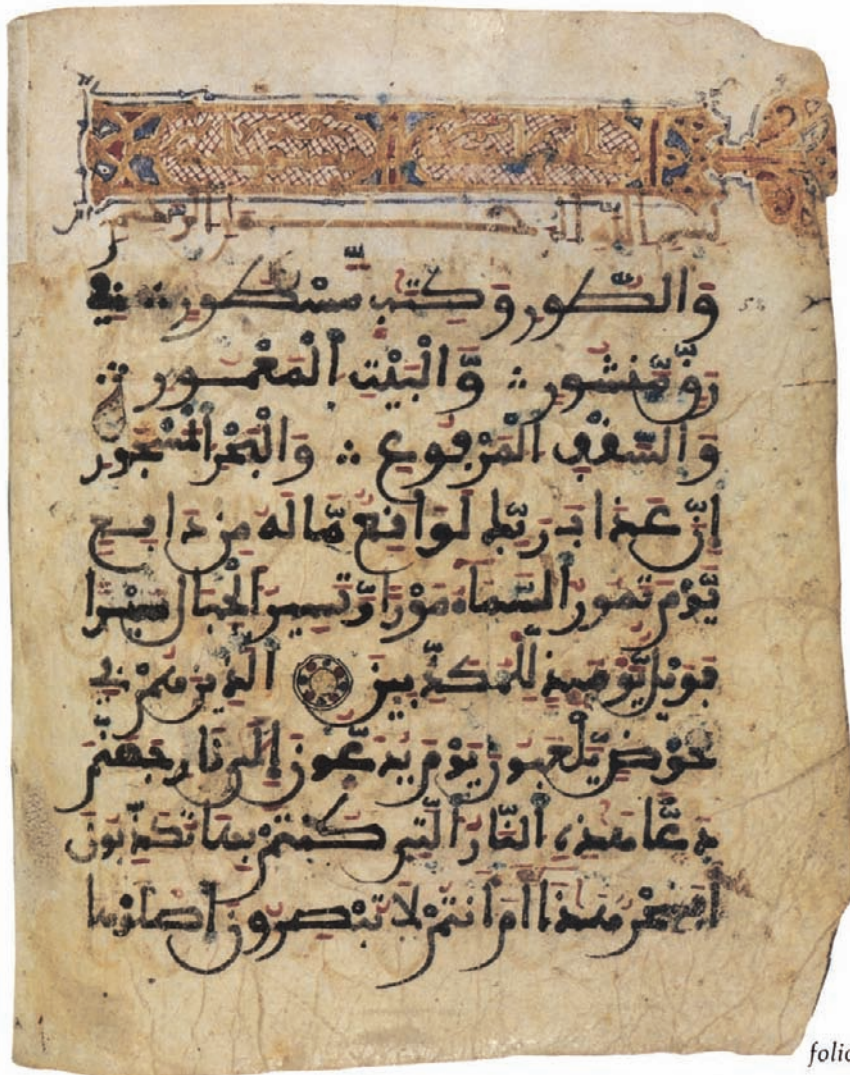 بسم الله الرحمن الرحيم
وَالطُّورِ وَكِتَٰبٍ مَّسْطُورٍ فِي
رَقٍّ مَّنشُورٍ وَّالْبَيْتِ الْمَعْمُورِ
وَالسَّقْفِ الْمَرْفُوعِ وَالْبَحْرِ الْمَسْجُورِ
إِنَّ عَذَابَ رَبِّكَ لَوَاقِعٌ مَّا لَهُ مِن دَافِعٍ
يَّوْمَ تَمُورُ السَّمَاءُ مَوْرًا وَّتَسِيرُ الْجِبَالُ سَيْرًا
فَوَيْلٌ يَّوْمَئِذٍ لِّلْمُكَذِّبِينَ الَّذِينَ هُمْ فِي
خَوْضٍ يَّلْعَبُونَ يَوْمَ يُدَعُّونَ إِلَىٰ نَارِ جَهَنَّمَ
دَعًّا هَٰذِهِ النَّارُ الَّتِي كُنتُمْ بِهَا تُكَذِّبُونَ
أَفَسِحْرٌ هَٰذَا أَمْ أَنتُمْ لَا تُبْصِرُونَ اصْلَوْهَا
folio